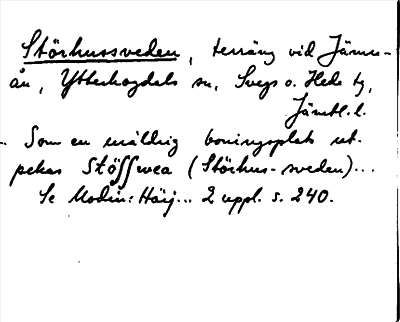 Störhussveden, terräng vid Jämn-
ån, Ytterhogdals sn, Svegs o. Hede tg,
Jämtl. l.
Som en uråldrig boningsplats ut-
pekas Stöffwea (Störhus-sveden)...
Se Modin: Härj... 2 uppl. s. 240.